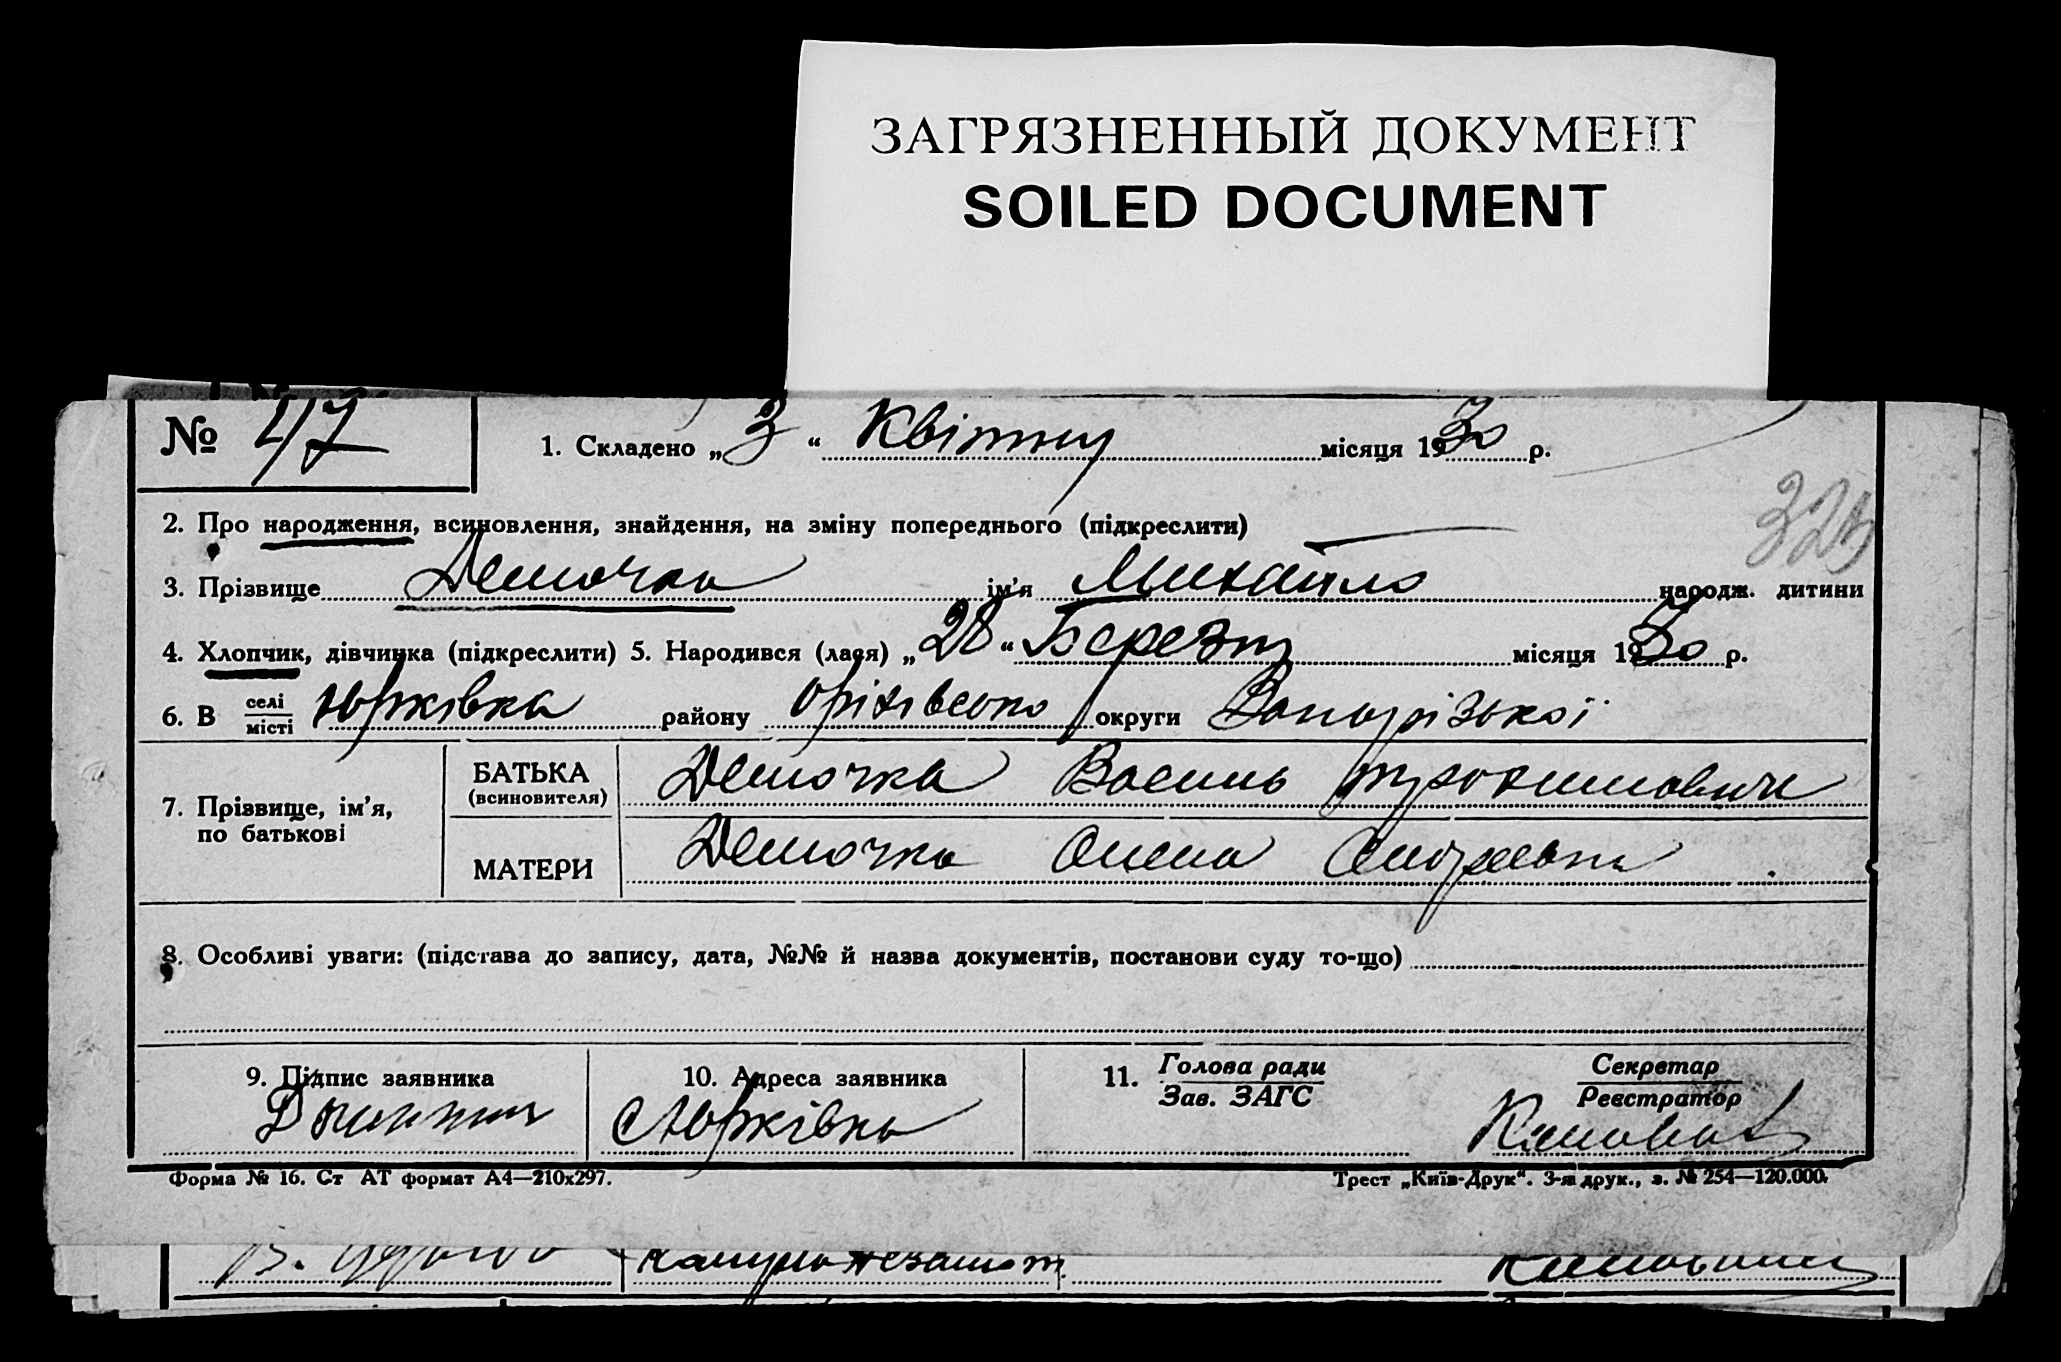 ЗАГРЯЗНЕННЫЙ ДОКУМЕНТ
SOILED DOCUMENT
№ 47 1. Складено „3“ Квітня місяця 1930 р.
325
2. Про народження, всиновлення, знайдення, на зміну попереднього (підкреслити)
3. Прізвище Демочка ім’я Михайло народж. дитини
4. Хлопчик, дівчинка (підкреслити) 5. Народився (лася) „28“ Березня місяця 1930 р.
6. В селі/місті Юрківка району Оріхівсько округи Запорізької
7. Прізвище, ім’я, по батькові
БАТЬКА (всиновителя) Демочка Василь
МАТЕРИ Демочка Олена Андреевна
8. Особливі уваги: (підстава до запису, дата, №№ й назва документів, постанови суду то-що)
9. Підпис заявника
10. Адреса заявника
с Юрківка
11. Голова ради
Зав. ЗАГС
Секретар
Реєстратор
Форма № 16. Ст АТ формат А4—210х297.
Трест „Київ-Друк“. 3-я друк., з. № 254—120.000.